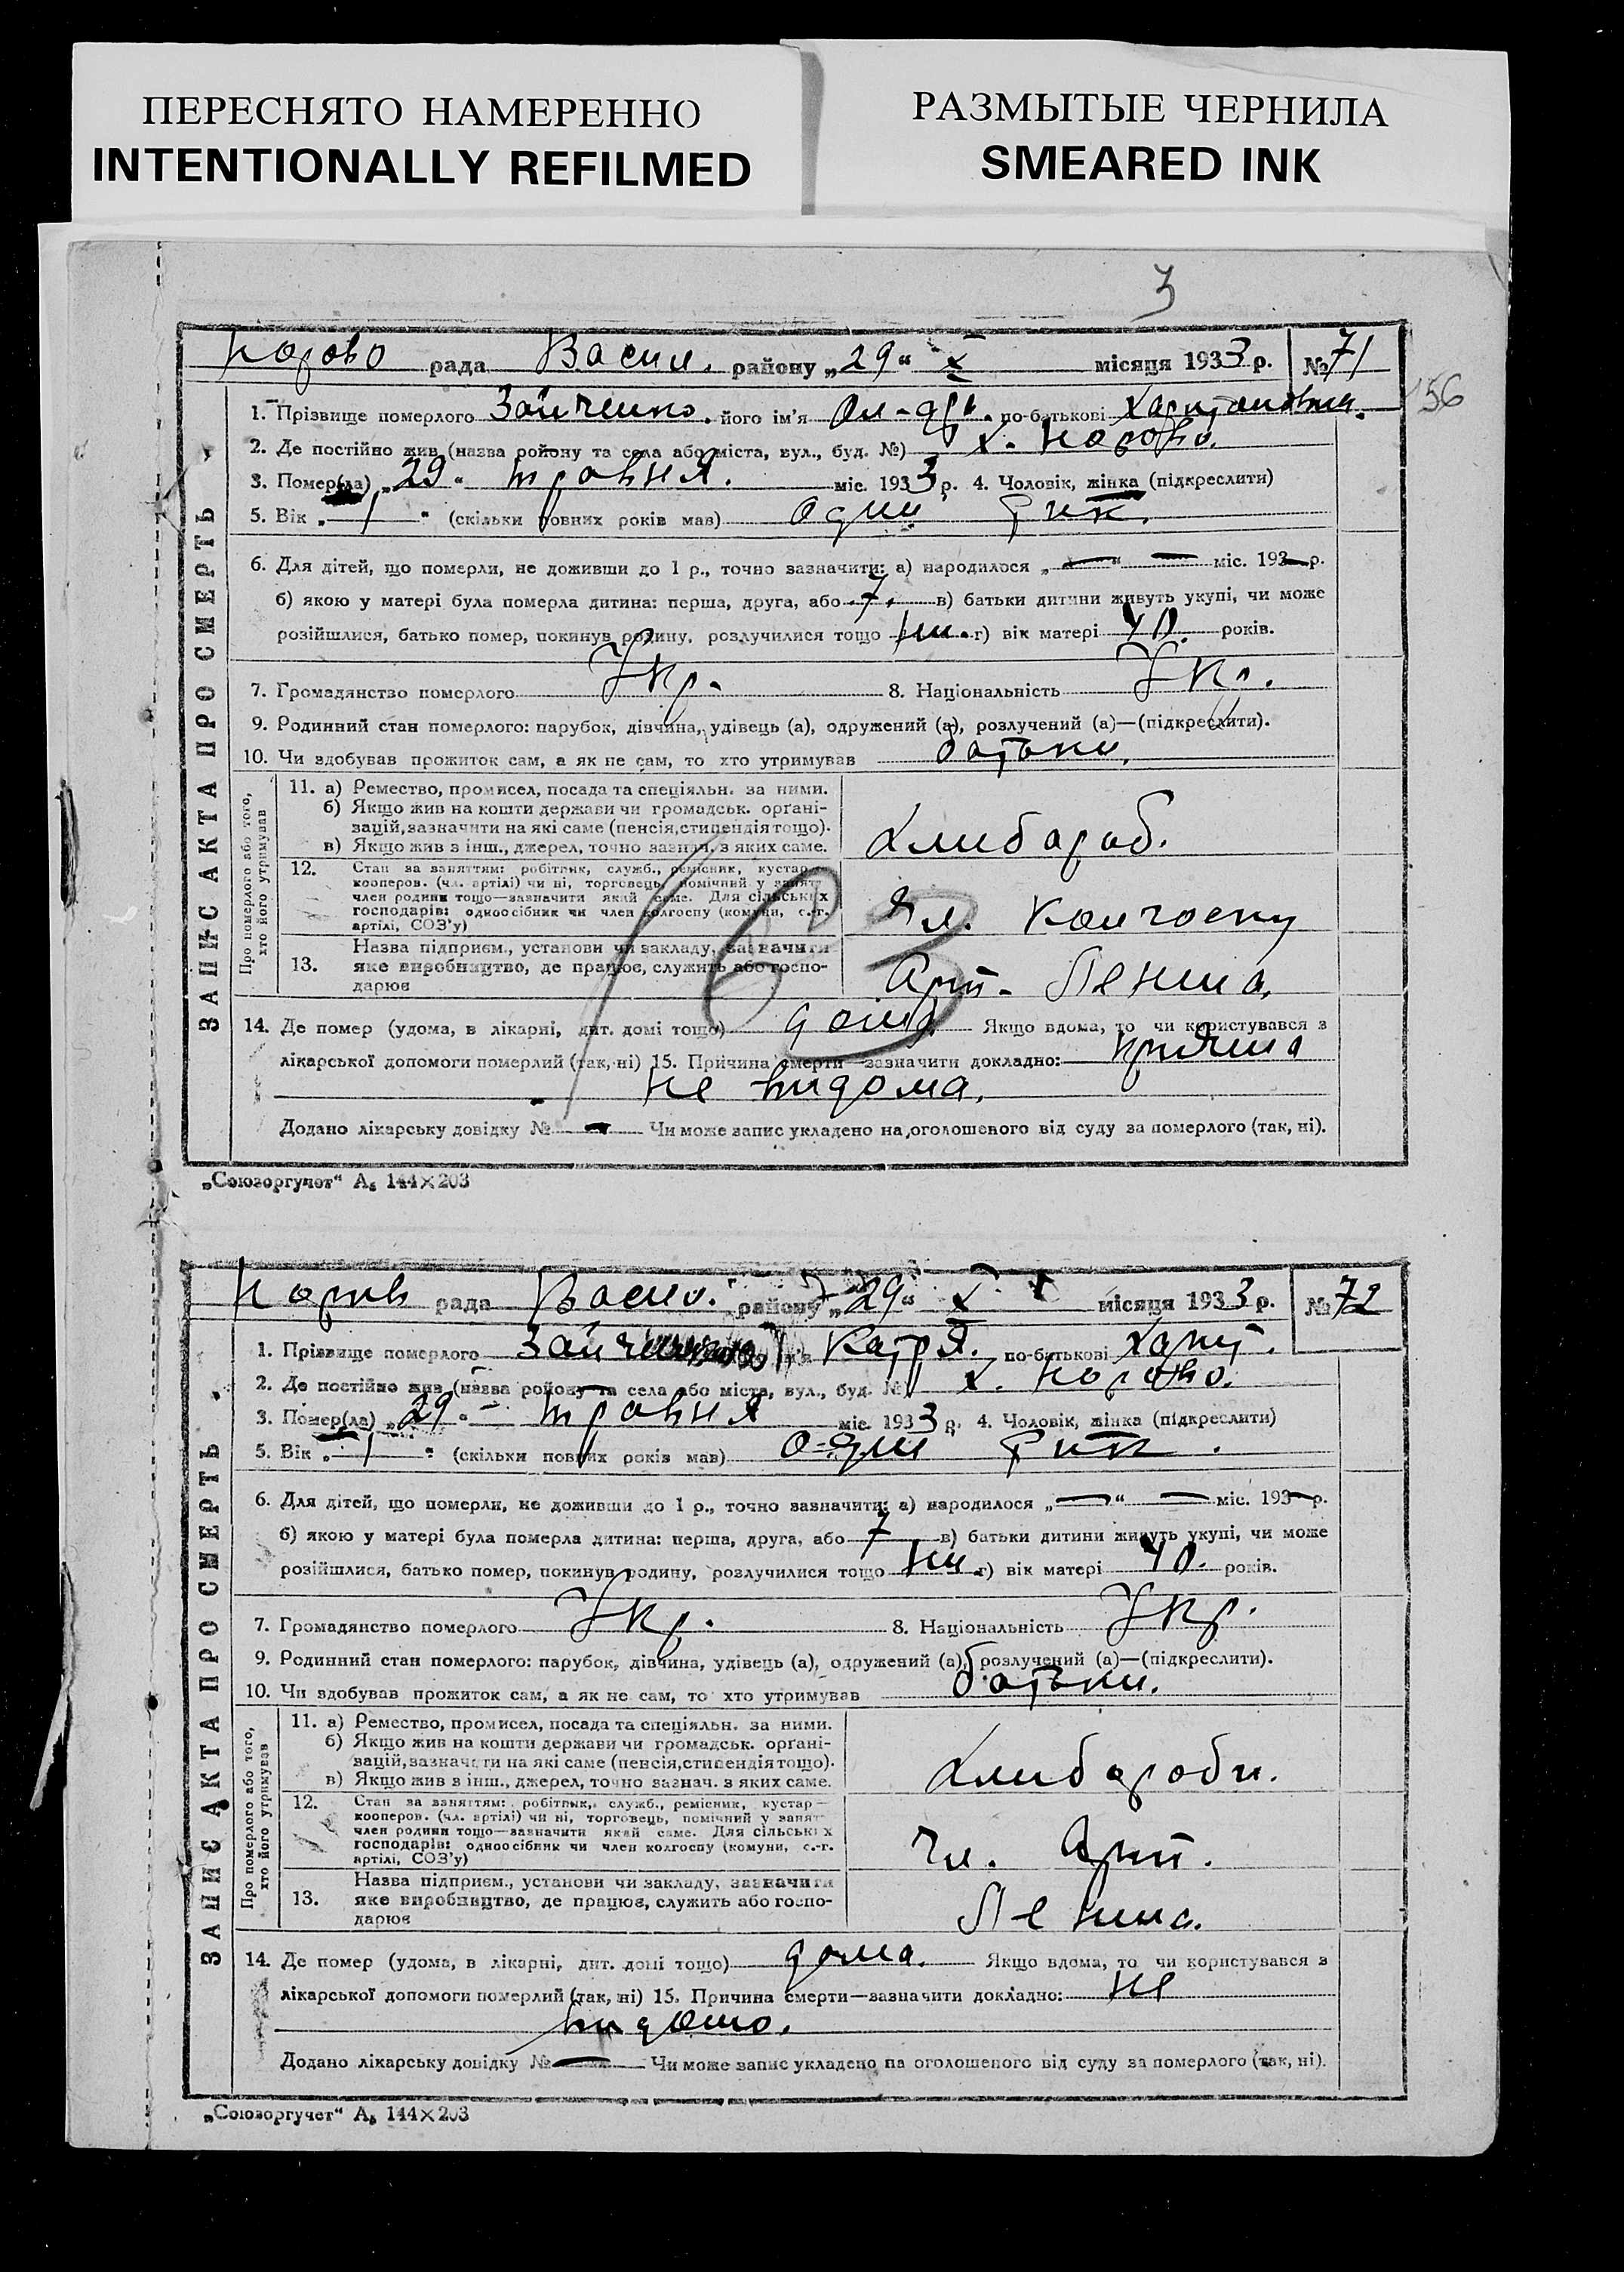 ПЕРЕСНЯТО НАМЕРЕННО
INTENTIONALLY REFILMED
РАЗМЫТЫЕ ЧЕРНИЛА
SMEARED INK
3
рада Васил. району „29“ X місяця 1933 р. № 71
156
ЗАПИС АКТА ПРО СМЕРТЬ
1. Прізвище померлого Зайченко. його ім'я по-батькові
2. Де постійно жив (назва району та села або міста, вул., буд. №) х.
3. Помер(ла) „29“ травня. міс. 1933 р. 4. Чоловік, жінка (підкреслити)
5. Вік „1“ (скільки повних років мав) один рик.
6. Для дітей, що померли, не доживши до 1 р., точно зазначити: а) народилося „—“ — міс. 193— р.
б) якою у матері була померла дитина: перша, друга, або 7. в) батьки дитини живуть укупі, чи може
розійшлися, батько помер, покинув родину, розлучилися тощо г) вік матері 40. років.
7. Громадянство померлого Укр. 8. Національність Укр.
9. Родинний стан померлого: парубок, дівчина, удівець (а), одружений (а), розлучений (а)—(підкреслити).
10. Чи здобував прожиток сам, а як не сам, то хто утримував батьки.
Про померлого або того, хто його утримував
11. а) Ремество, промисел, посада та спеціяльн. за ними.
б) Якщо жив на кошти держави чи громадськ. орґані-
зацій, зазначити на які саме (пенсія, стипендія тощо).
в) Якщо жив з інш., джерел, точно зазнач. з яких саме.
Хлибароб.
12. Стан за заняттям: робітник, служб., ремісник, кустар—
кооперов. (чл. артілі) чи ні, торговець, помічний у занят.
член родини тощо—зазначити який саме. Для сільських
господарів: одноосібник чи член колгоспу (комуни, с.-г.
артілі, СОЗ'у)
Чл. колгоспу
13. Назва підприєм., установи чи закладу, зазначити
яке виробництво, де працює, служить або госпо-
дарює
Арт. Ленина.
163
14. Де помер (удома, в лікарні, дит. домі тощо) дома. Якщо вдома, то чи користувався з
лікарської допомоги померлий (так, ні) 15. Причина смерти—зазначити докладно: причина
не видома.
Додано лікарську довідку № — Чи може запис укладено на оголошеного від суду за померлого (так, ні).
„Союзоргучет“ А₅ 144×203
рада Васил. району „29“ X місяця 1933 р. № 72
ЗАПИС АКТА ПРО СМЕРТЬ
1. Прізвище померлого Зайченко Катря. по-батькові Харит.
2. Де постійно жив (назва району та села або міста, вул., буд. № х.
3. Помер(ла) „29“ травня міс. 1933 р. 4. Чоловік, жінка (підкреслити)
5. Вік „1“ (скільки повних років мав) один рик.
6. Для дітей, що померли, не доживши до 1 р., точно зазначити: а) народилося „—“ — міс. 193— р.
б) якою у матері була померла дитина: перша, друга, або 7 в) батьки дитини живуть укупі, чи може
розійшлися, батько помер, покинув родину, розлучилися тощо г) вік матері 40. років.
7. Громадянство померлого Укр. 8. Національність Укр.
9. Родинний стан померлого: парубок, дівчина, удівець (а), одружений (а), розлучений (а)—(підкреслити).
10. Чи здобував прожиток сам, а як не сам, то хто утримував батьки.
Про померлого або того, хто його утримував
11. а) Ремество, промисел, посада та спеціяльн. за ними.
б) Якщо жив на кошти держави чи громадськ. орґані-
зацій, зазначити на які саме (пенсія, стипендія тощо).
в) Якщо жив з інш., джерел, точно зазнач. з яких саме.
Хлибароби.
12. Стан за заняттям: робітник, служб., ремісник, кустар—
кооперов. (чл. артілі) чи ні, торговець, помічний у занят.
член родини тощо—зазначити який саме. Для сільських
господарів: одноосібник чи член колгоспу (комуни, с.-г.
артілі, СОЗ'у)
Чл. Арт.
13. Назва підприєм., установи чи закладу, зазначити
яке виробництво, де працює, служить або госпо-
дарює
Ленина.
14. Де помер (удома, в лікарні, дит. домі тощо) дома. Якщо вдома, то чи користувався з
лікарської допомоги померлий (так, ні) 15. Причина смерти—зазначити докладно: не
видомо.
Додано лікарську довідку № — Чи може запис укладено на оголошеного від суду за померлого (так, ні).
„Союзоргучет“ А₅ 144×203